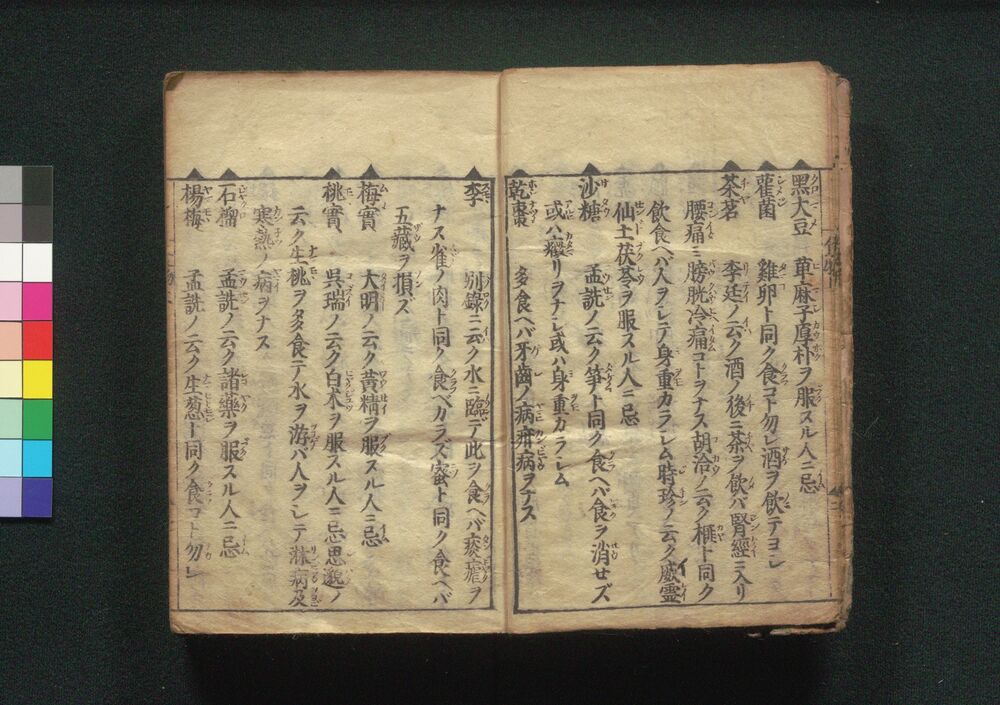 黒大豆 萆麻子厚朴ヲ服スル人ニ忌
藿菌 雞卵ト同ク食コト勿レ酒ヲ飲テヨシ
茶茗 李廷ノ云ク酒ノ後ニ茶ヲ飲バ腎經ニ入リ
腰痛ミ膀胱冷痛コトヲナス胡洽ノ云ク榧ト同ク
飲食ヘバ人ヲシテ身重カラシム時珍ノ云ク威靈
仙土茯苓ヲ服スル人ニ忌
沙糖 孟詵ノ云ク笋ト同ク食ヘバ食ヲ消せズ
或ハ癥リヲナシ或ハ身重カラシム
乾棗 多食ヘバ牙齒ノ病疳病ヲナス
李 別錄ニ云ク水ニ臨テ此ヲ食ヘバ痰瘧ヲ
ナス雀ノ肉ト同ク食ベカラズ蜜ト同ク食ヘバ
五藏ヲ損ズ
梅實 大明ノ云ク黃精ヲ服スル人ニ忌
桃實 呉瑞ノ云ク白术ヲ服スル人ニ忌思邈ノ
云ク生桃ヲ多食テ水ヲ游バ人ヲシテ淋病及
寒熱ノ病ヲナス
石榴 孟詵ノ云ク諸藥ヲ服スル人ニ忌
楊梅 孟詵ノ云ク生葱ト同ク食コト勿レ